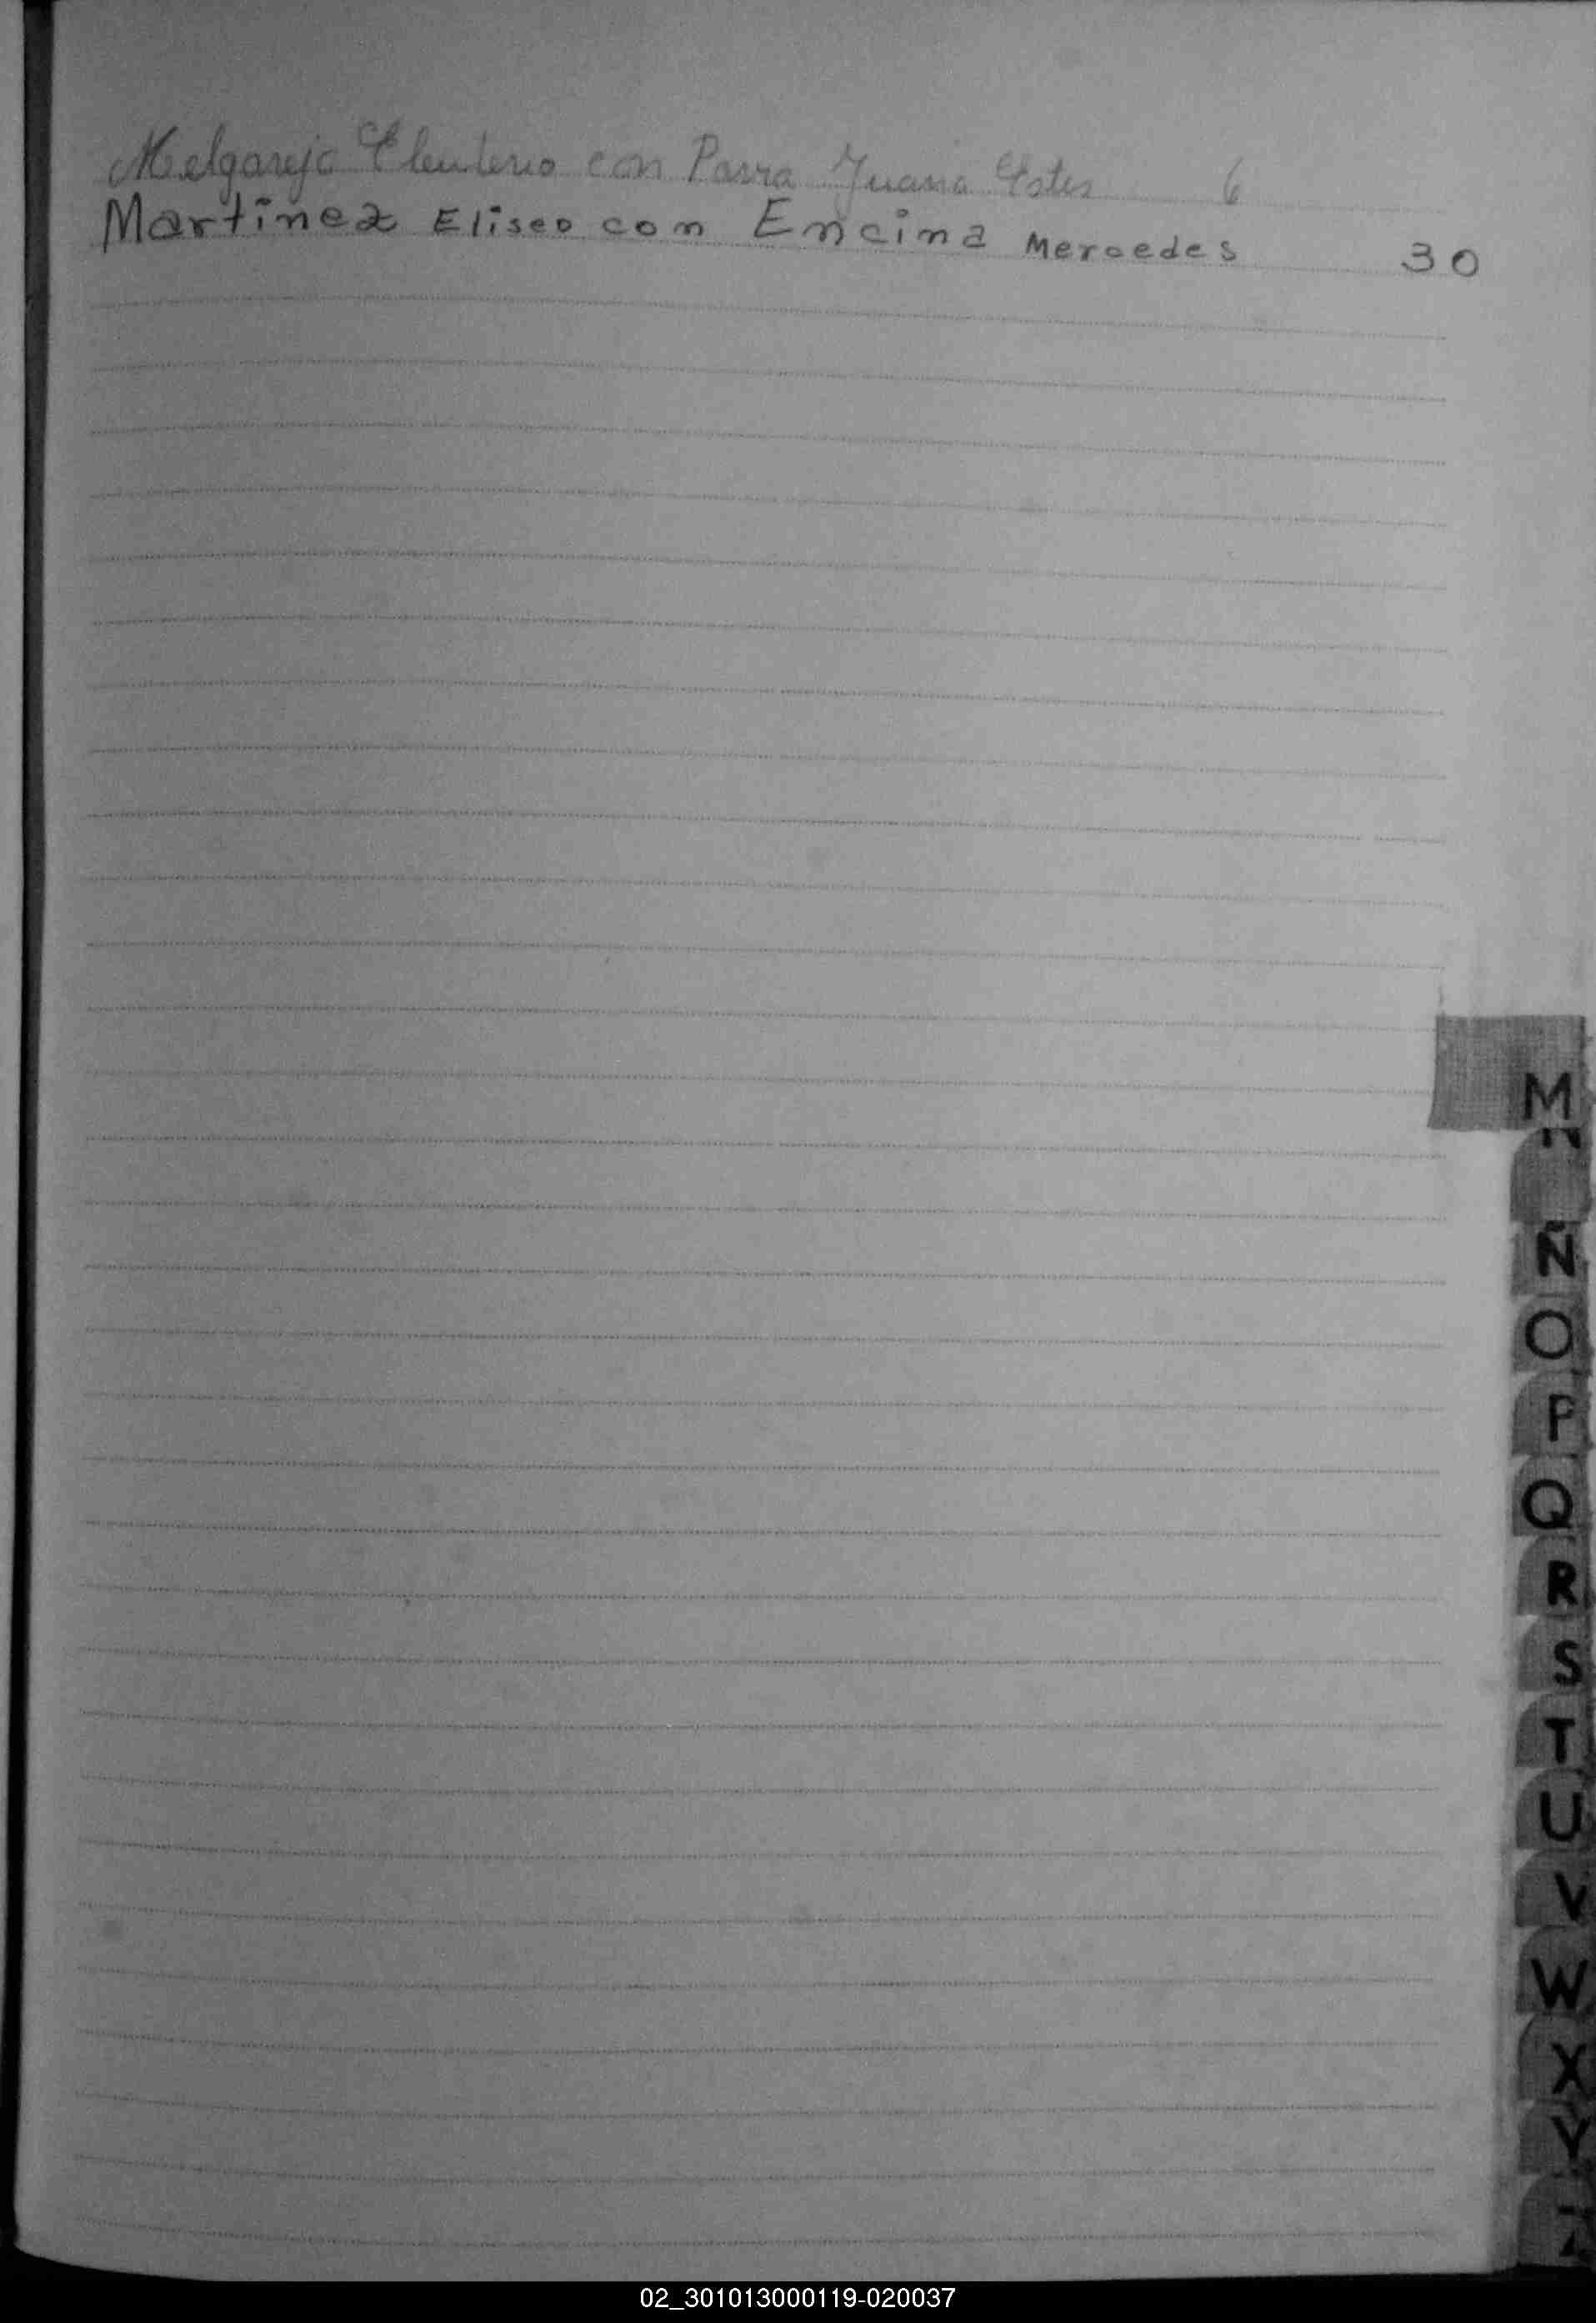 Melgarejo Eleuterio con Parra Juana Ester 6
Martinez Eliseo con Encina Mercedes 30
M
N
Ñ
O
P
Q
R
S
T
U
V
W
X
Y
Z
02_301013000119-020037